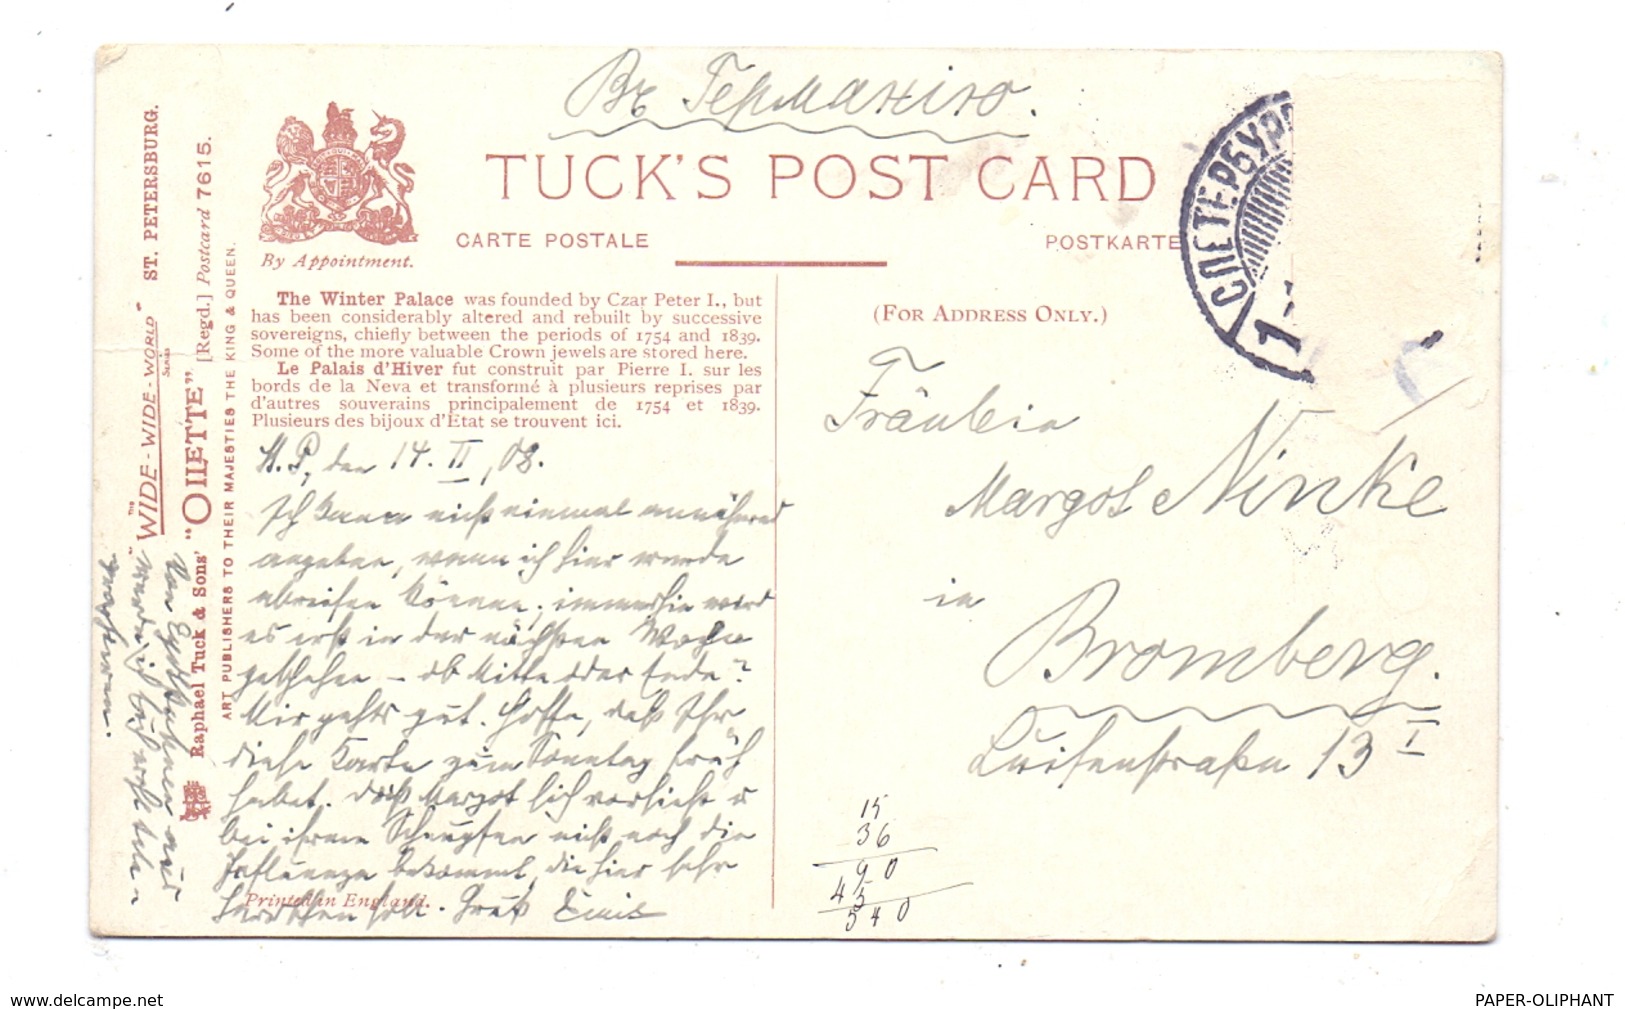 Въ Германiю.
TUCK'S POST CARD
CARTE POSTALE
POSTKARTE
By Appointment.
(FOR ADDRESS ONLY.)
С ПЕТЕРБУР
1
The Winter Palace was founded by Czar Peter I., but
has been considerably altered and rebuilt by successive
sovereigns, chiefly between the periods of 1754 and 1839.
Some of the more valuable Crown jewels are stored here.
Le Palais d'Hiver fut construit par Pierre I. sur les
bords de la Neva et transformé à plusieurs reprises par
d'autres souverains principalement de 1754 et 1839.
Plusieurs des bijoux d'Etat se trouvent ici.
St. P., den 14. II, 08.
Ich kann nicht einmal annähernd
angeben, wann ich hier werde
abreisen können; immerhin wird
es erst in der nächsten Woche
geschehen – ob Mitte oder Ende?
Mir gehts gut. Hoffe, daß Ihr
diese Karte zum Sonntag früh
habet. Daß Margot sich vorsieht u
bei ihrem Schnupfen nicht noch die
Influenza bekommt, die hier sehr
herrschen soll. Gruß
Printed in England.
Von Eydtkuhnen aus
werde ich
Fräulein
Margot Ninke
in
Bromberg.
Luisenstraße 13 I
15
36
90
45
540
THE "WIDE-WIDE-WORLD" SERIES ST. PETERSBURG.
Raphael Tuck & Sons' "OILETTE" [Regd.] Postcard 7615.
ART PUBLISHERS TO THEIR MAJESTIES THE KING & QUEEN.
www.delcampe.net
PAPER-OLIPHANT